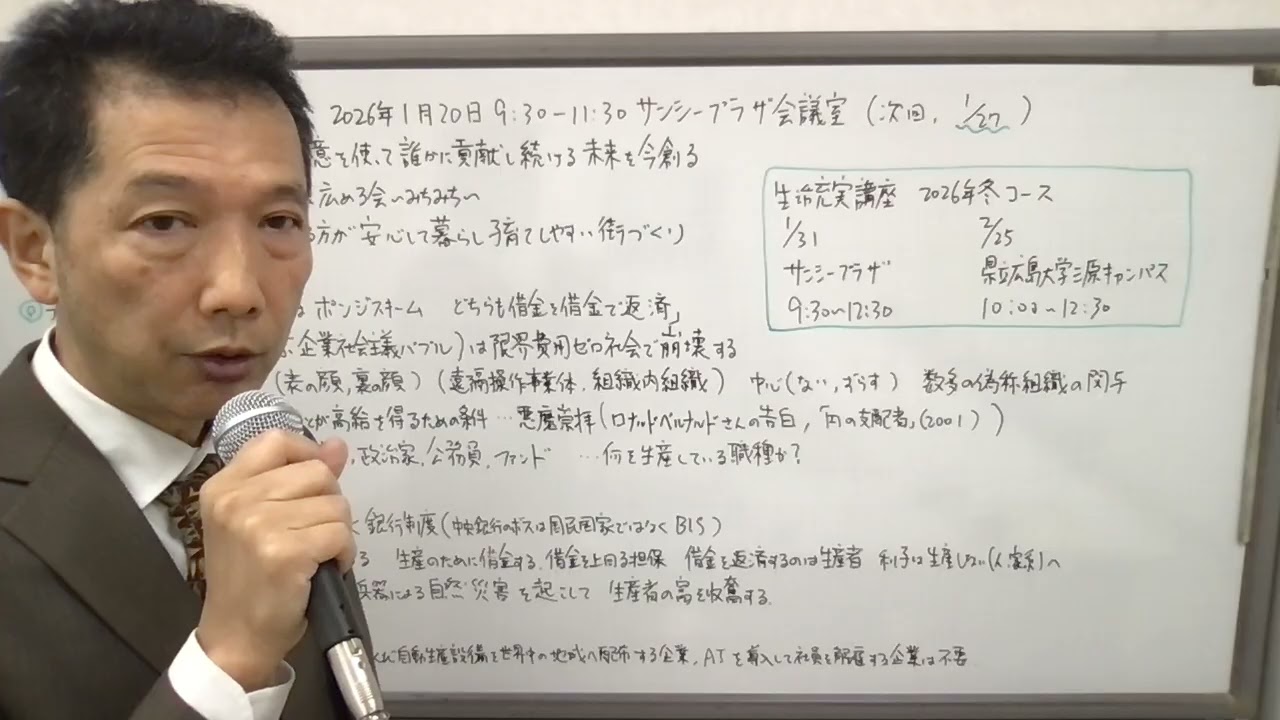 2026年1月20日 9:30-11:30 サンシープラザ会議室 (次回, 1/27)
意を使って誰かに貢献し続ける未来を今創る
広める会~みちみち~
方が安心して暮らし子育てしやすい街づくり
生活充実講座 2026年冬コース
1/31 2/25
サンシープラザ 県立広島大学三原キャンパス
9:30~12:30 10:00~12:30
Q
は ポンジスキーム どちらも借金を借金で返済」
企業社会主義バブル)は限界費用ゼロ社会で崩壊する
(表の顔,裏の顔) (遠隔操作事業体,組織内組織) 中心(ない,ずらす) 数多の偽称組織の関与
が高給を得るための条件…悪魔崇拝(ロナルドベルナルドさんの告白,「円の支配者」(2001))
,政治家,公務員,ファンド …何を生産している職種か?
く銀行制度(中央銀行のボスは国民国家ではなくBIS)
る 生産のために借金する,借金を上回る担保 借金を返済するのは生産者 利子は生産しない人(家系)へ
兵器による自然災害を起こして 生産者の富を収奪する.
自動生産設備を世界中の地域へ配布する企業,AIを導入して社員を解雇する企業は不要